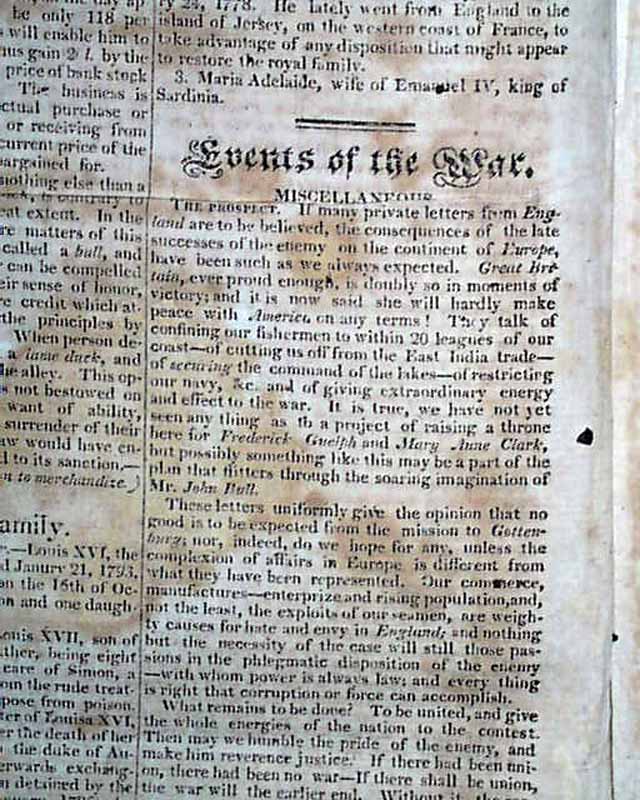 be only 118 per
s will enable him to
hus gain 2 l. by the
price of bank stock
The business is
ctual purchase or
or receiving from
current price of the
bargained for.
nothing else than a
contrary to
eat extent. In the
re matters of this
called a bull, and
can be compelled
eir sense of honor,
re credit which at-
the principles by
When person de-
a lame duck, and
he alley. This op-
s not bestowed on
want of ability,
surrender of their
aw would have en-
d to its sanction.—
n to merchandize.)
amily.
—Louis XVI, the
d Janury 21, 1793.
on the 16th of Oc-
on and one daugh-
ouis XVII, son of
ther, being eight
care of Simon, a
the rude treat-
pose from poison.
ter of Louisa XVI,
er the death of her
the duke of Au-
erwards exchang-
n detained by the
ry 24, 1778. He lately went from England to the
island of Jersey, on the western coast of France, to
take advantage of any disposition that might appear
to restore the royal family.
3. Maria Adelaide, wife of Emanuel IV, king of
Sardinia.
Events of the War.
MISCELLANEOUS.
THE PROSPECT. If many private letters from Eng-
land are to be believed, the consequences of the late
successes of the enemy on the continent of Europe,
have been such as we always expected. Great Bri-
tain, ever proud enough, is doubly so in moments of
victory; and it is now said she will hardly make
peace with America on any terms! They talk of
confining our fishermen to within 20 leagues of our
coast—of cutting us off from the East India trade—
of securing the command of the lakes—of restricting
our navy, &c. and of giving extraordinary energy
and effect to the war. It is true, we have not yet
seen any thing as to a project of raising a throne
here for Frederick Guelph and Mary Anne Clark,
but possibly something like this may be a part of the
plan that flitters through the soaring imagination of
Mr. John Bull.
These letters uniformly give the opinion that no
good is to be expected from the mission to Gotten-
burg; nor, indeed, do we hope for any, unless the
complexion of affairs in Europe is different from
what they have been represented. Our commerce,
manufactures—enterprize and rising population, and,
not the least, the exploits of our seamen, are weigh-
ty causes for hate and envy in England; and nothing
but the necessity of the case will still those pas-
sions in the phlegmatic disposition of the enemy
—with whom power is always law; and every thing
is right that corruption or force can accomplish.
What remains to be done? To be united, and give
the whole energies of the nation to the contest.
Then may we humble the pride of the enemy, and
make him reverence justice. If there had been uni-
on, there had been no war—If there shall be union,
the war will the earlier end. Without it the